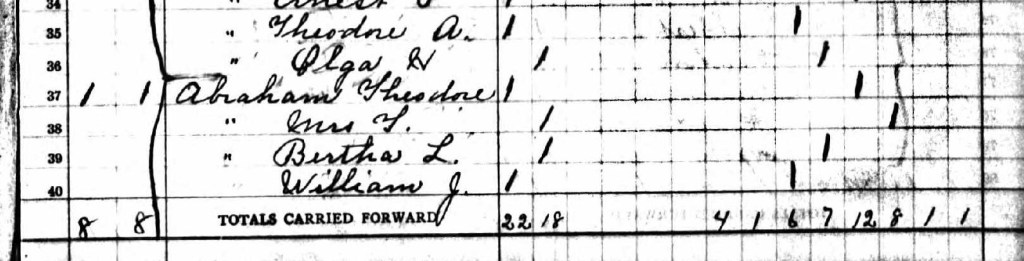 34 " Ernest 1
35 " Theodore A. 1 1
36 " Olga H 1 1
37 1 1 Abraham Theodore 1 1
38 " Mrs T. 1 1
39 " Bertha L. 1 1
40 William J. 1 1
8 8 TOTALS CARRIED FORWARD 22 18 4 1 6 7 12 8 1 1